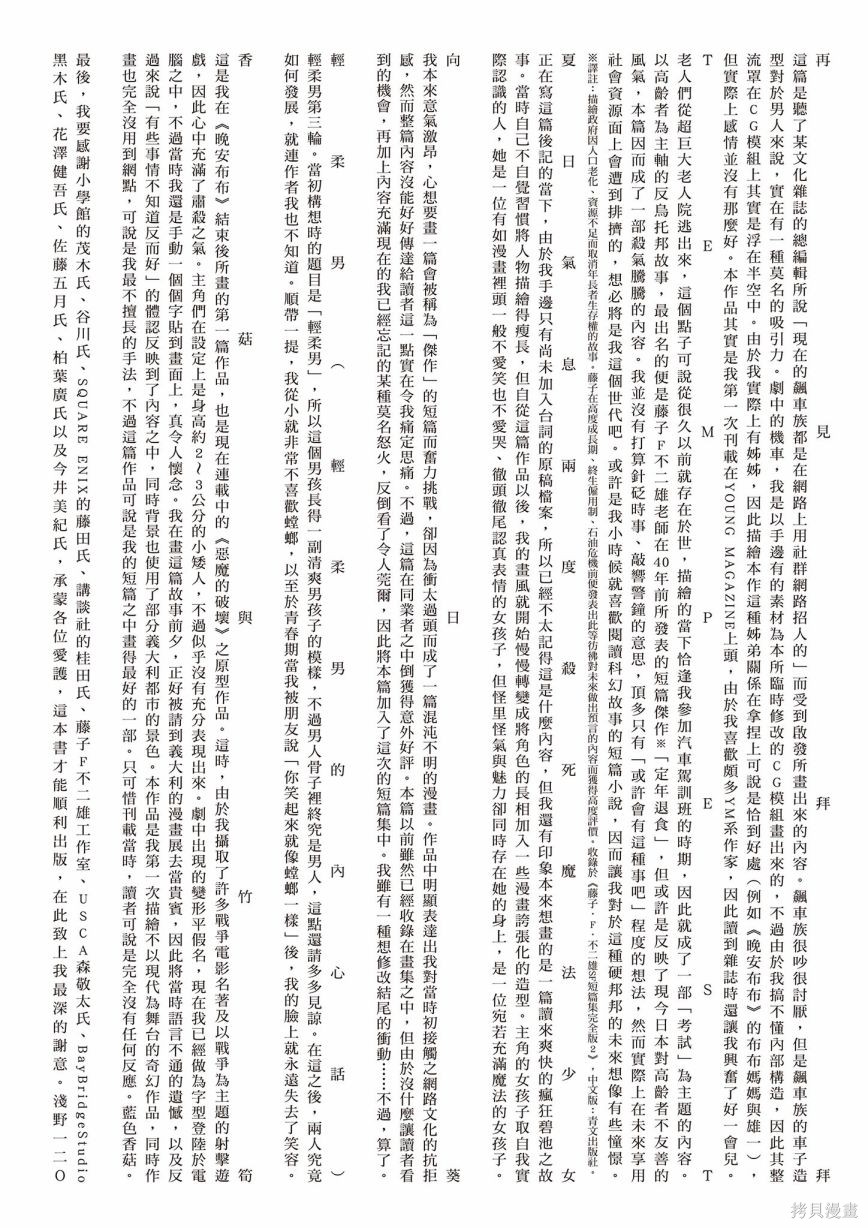 再見拜拜
這篇是聽了某文化雜誌的總編輯所說「現在的飆車族都是在網路上用社群網路招人的」而受到啟發所畫出來的內容。飆車族很吵很討厭，但是飆車族的車子造
型對於男人來說，實在有一種莫名的吸引力。劇中的機車，我是以手邊有的素材為本所臨時修改的CG模組畫出來的，不過由於我搞不懂內部構造，因此其整
流罩在CG模組上其實是浮在半空中。由於我實際上有姊姊，因此描繪本作這種姊弟關係在拿捏上可說是恰到好處（例如《晚安布布》的布布媽媽與雄一），
但實際上感情並沒有那麼好。本作品其實是我第一次刊載在YOUNG MAGAZINE上頭，由於我喜歡頗多YM系作家，因此讀到雜誌時還讓我興奮了好一會兒。
TEMPEST
老人們從超巨大老人院逃出來，這個點子可說從很久以前就存在於世，描繪的當下恰逢我參加汽車駕訓班的時期，因此就成了一部「考試」為主題的內容。
以高齡者為主軸的反烏托邦故事，最出名的便是藤子F不二雄老師在40年前所發表的短篇傑作※「定年退食」，但或許是反映了現今日本對高齡者不友善的
風氣，本篇因而成了一部殺氣騰騰的內容。我並沒有打算針砭時事、敲響警鐘的意思，頂多只有「或許會有這種事吧」程度的想法，然而實際上在未來享用
社會資源面上會遭到排擠的，想必將是我這個世代吧。或許是我小時候就喜歡閱讀科幻故事的短篇小說，因而讓我對於這種硬邦邦的未來想像有些憧憬。
※譯註：描繪政府因人口老化、資源不足而取消年長者生存權的故事。藤子在高度成長期、終生僱用制、石油危機前便發表出此等彷彿對未來做出預言的內容而獲得高度評價。收錄於《藤子・F・不二雄SF短篇集完全版2》，中文版：青文出版社。
夏日氣息兩度殺死魔法少女
正在寫這篇後記的當下，由於我手邊只有尚未加入台詞的原稿檔案，所以已經不太記得這是什麼內容，但我還有印象本來想畫的是一篇讀來爽快的瘋狂碧池之故
事。當時自己不自覺習慣將人物描繪得瘦長，但自從這篇作品以後，我的畫風就開始慢慢轉變成將角色的長相加入一些漫畫誇張化的造型。主角的女孩子取自我實
際認識的人，她是一位有如漫畫裡頭一般不愛笑也不愛哭、徹頭徹尾認真表情的女孩子，但怪里怪氣與魅力卻同時存在她的身上，是一位宛若充滿魔法的女孩子。
向日葵
我本來意氣激昂，心想要畫一篇會被稱為「傑作」的短篇而奮力挑戰，卻因為衝太過頭而成了一篇混沌不明的漫畫。作品中明顯表達出我對當時初接觸之網路文化的抗拒
感，然而整篇內容沒能好好傳達給讀者這一點實在令我痛定思痛。不過，這篇在同業者之中倒獲得意外好評。本篇以前雖然已經收錄在畫集之中，但由於沒什麼讓讀者看
到的機會，再加上內容充滿現在的我已經忘記的某種莫名怒火，反倒看了令人莞爾，因此將本篇加入了這次的短篇集中。我雖有一種想修改結尾的衝動……不過，算了。
輕柔男（輕柔男的內心話）
輕柔男第三輪。當初構想時的題目是「輕柔男」，所以這個男孩長得一副清爽男孩子的模樣，不過男人骨子裡終究是男人，這點還請多多見諒。在這之後，兩人究竟
如何發展，就連作者我也不知道。順帶一提，我從小就非常不喜歡螳螂，以至於青春期當我被朋友說「你笑起來就像螳螂一樣」後，我的臉上就永遠失去了笑容。
香菇與竹筍
這是我在《晚安布布》結束後所畫的第一篇作品，也是現在連載中的《惡魔的破壞》之原型作品。這時，由於我攝取了許多戰爭電影名著及以戰爭為主題的射擊遊
戲，因此心中充滿了肅殺之氣。主角們在設定上是身高約2～3公分的小矮人，不過似乎沒有充分表現出來。劇中出現的變形平假名，現在我已經做為字型登陸於電
腦之中，不過當時我還是手動一個個字貼到畫面上，真令人懷念。我在畫這篇故事前夕，正好被請到義大利的漫畫展去當貴賓，因此將當時語言不通的遺憾，以及反
過來說「有些事情不知道反而好」的體認反映到了內容之中，同時背景也使用了部分義大利都市的景色。本作品是我第一次描繪不以現代為舞台的奇幻作品，同時作
畫也完全沒用到網點，可說是我最不擅長的手法，不過這篇作品可說是我的短篇之中畫得最好的一部。只可惜刊載當時，讀者可說是完全沒有任何反應。藍色香菇。
最後，我要感謝小學館的茂木氏、谷川氏、SQUARE ENIX的藤田氏、講談社的桂田氏、藤子F不二雄工作室、USCA森敬太氏、BayBridgeStudio
黑木氏、花澤健吾氏、佐藤五月氏、柏葉廣氏以及今井美紀氏，承蒙各位愛護，這本書才能順利出版，在此致上我最深的謝意。淺野一二〇
拷貝漫畫